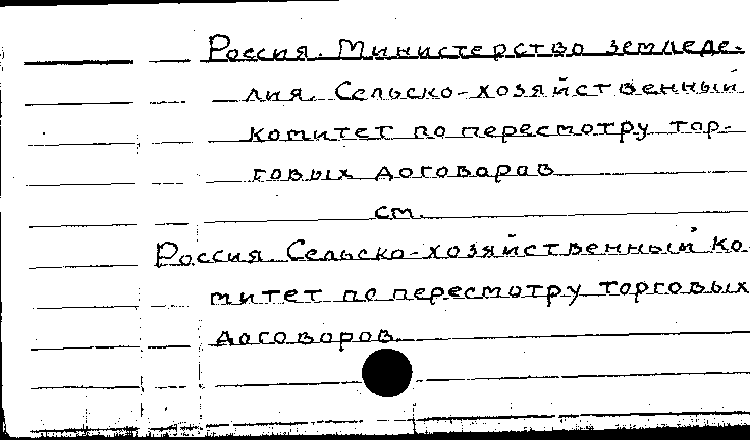 Россия. Министерство земледе-
лия. Сельско-хозяйственный
комитет по пересмотру тор-
говых договоров
см.
Россия. Сельско-хозяйственный ко
митет по пересмотру торговых
договоров.